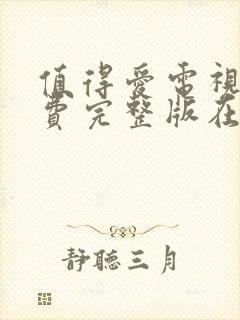 值得爱電視
費完整版在
靜聽三月